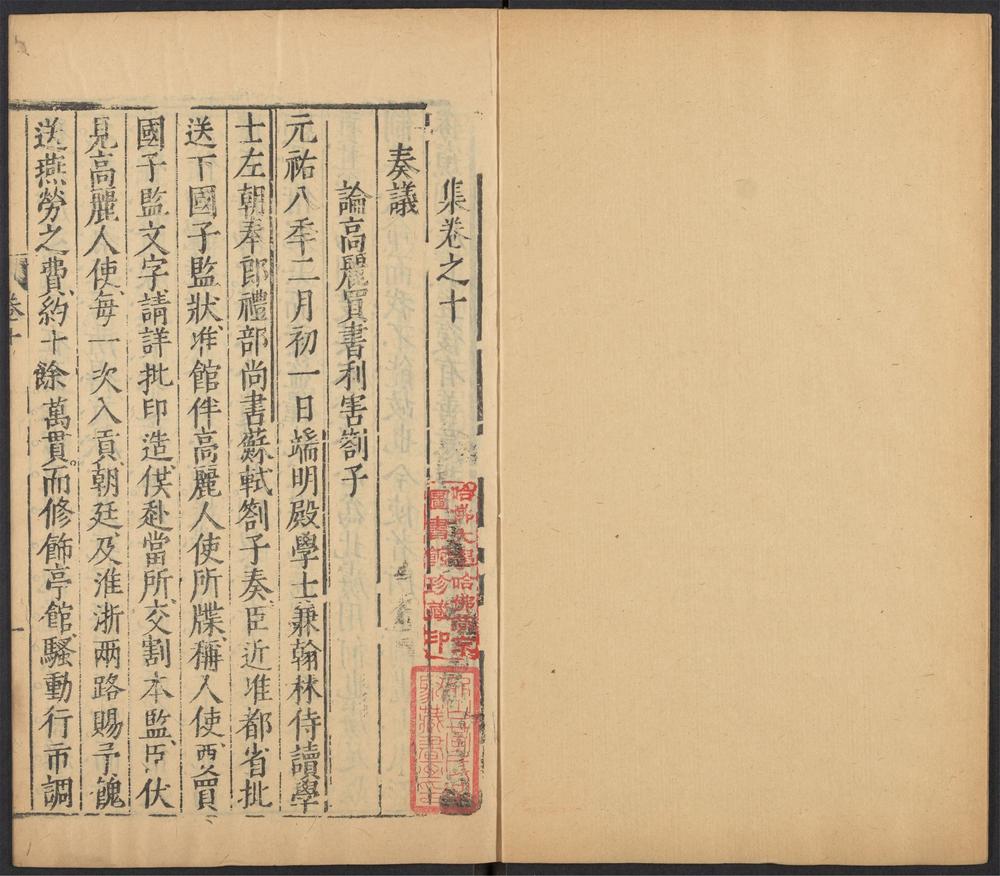 集卷之十
奏議
論高麗買書利害劄子
元祐八年二月初一日端明殿學士兼翰林侍讀學
士左朝奉郎禮部尚書蘇軾劄子奏臣近准都省批
送下國子監狀准館伴高麗人使所牒稱人使要買
國子監文字請詳批印造供赴當所交割本監臣伏
見高麗人使每一次入貢朝廷及淮浙兩路賜予餽
送燕勞之費約十餘萬貫而修飾亭館騷動行市調
卷十
一
哈佛大學哈佛燕京
圖書館珍藏印